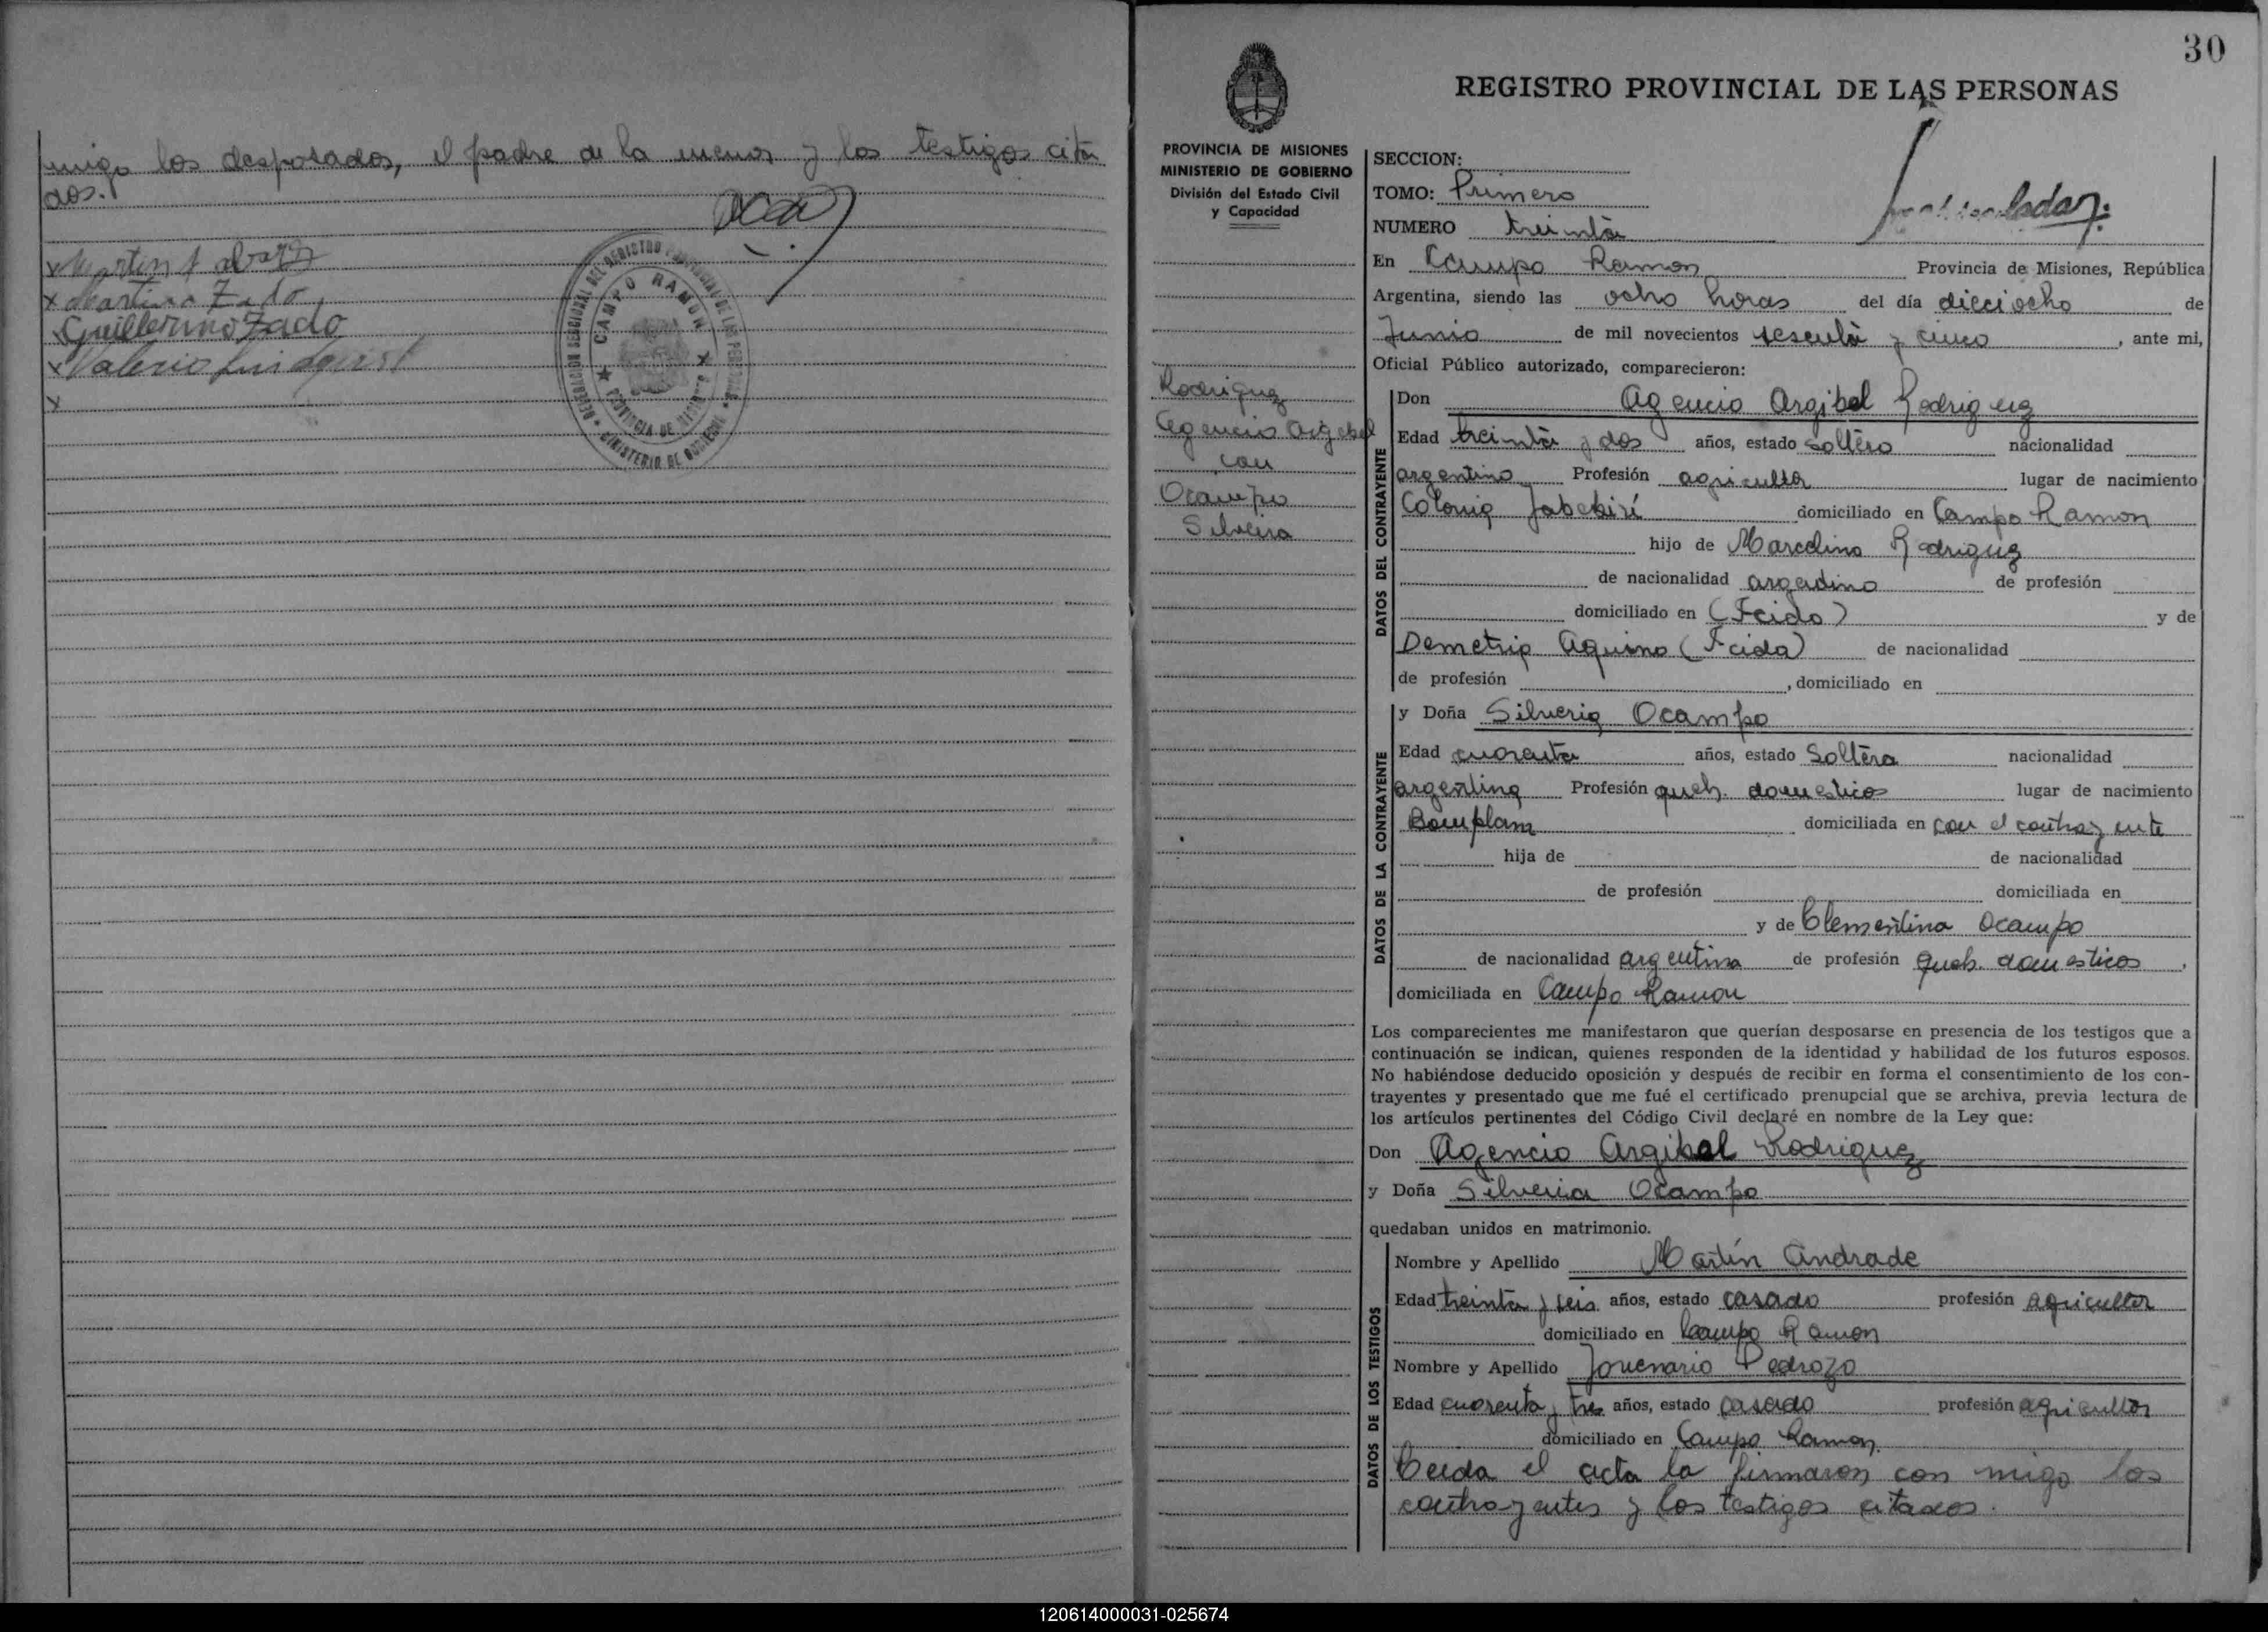 migo los desposados, el padre de la menor y los testigos cita
dos.
Guillermo Zado
Valerio Lindquist
CAMPO RAMON
30
REGISTRO PROVINCIAL DE LAS PERSONAS
PROVINCIA DE MISIONES
MINISTERIO DE GOBIERNO
División del Estado Civil
y Capacidad
Rodriguez
Agencio Argibal
con
Ocampo
Silveria
SECCION:
TOMO: Primero
NUMERO treinta
En Campo Ramon Provincia de Misiones, República
Argentina, siendo las ocho horas del día dieciocho de
Junio de mil novecientos sesenta y cinco, ante mi,
Oficial Público autorizado, comparecieron:
DATOS DEL CONTRAYENTE
Don Agencio Argibal Rodriguez
Edad treinta y dos años, estado soltero nacionalidad
argentino Profesión agricultor lugar de nacimiento
Colonia Yabebirí domiciliado en Campo Ramon
hijo de Marcelino Rodriguez
de nacionalidad argentino de profesión
domiciliado en (Fcido) y de
Demetria Aquino (Fcida) de nacionalidad
de profesión , domiciliado en
DATOS DE LA CONTRAYENTE
y Doña Silveria Ocampo
Edad cuarenta años, estado Soltera nacionalidad
argentina Profesión queh. domesticos lugar de nacimiento
Bomplam domiciliada en con el contrayente
hija de de nacionalidad
de profesión domiciliada en
y de Clementina Ocampo
de nacionalidad argentina de profesión queh. domesticos,
domiciliada en Campo Ramon
Los comparecientes me manifestaron que querían desposarse en presencia de los testigos que a
continuación se indican, quienes responden de la identidad y habilidad de los futuros esposos.
No habiéndose deducido oposición y después de recibir en forma el consentimiento de los con-
trayentes y presentado que me fué el certificado prenupcial que se archiva, previa lectura de
los artículos pertinentes del Código Civil declaré en nombre de la Ley que:
Don Agencio Argibal Rodriguez
y Doña Silveria Ocampo
quedaban unidos en matrimonio.
DATOS DE LOS TESTIGOS
Nombre y Apellido Martín Andrade
Edad treinta y seis años, estado casado profesión agricultor
domiciliado en Campo Ramon
Nombre y Apellido Jovenario Pedrozo
Edad cuarenta y tres años, estado casado profesión agricultor
domiciliado en Campo Ramon.
Leida el acta la firmaron con migo los
contrayentes y los testigos citados.
120614000031-025674